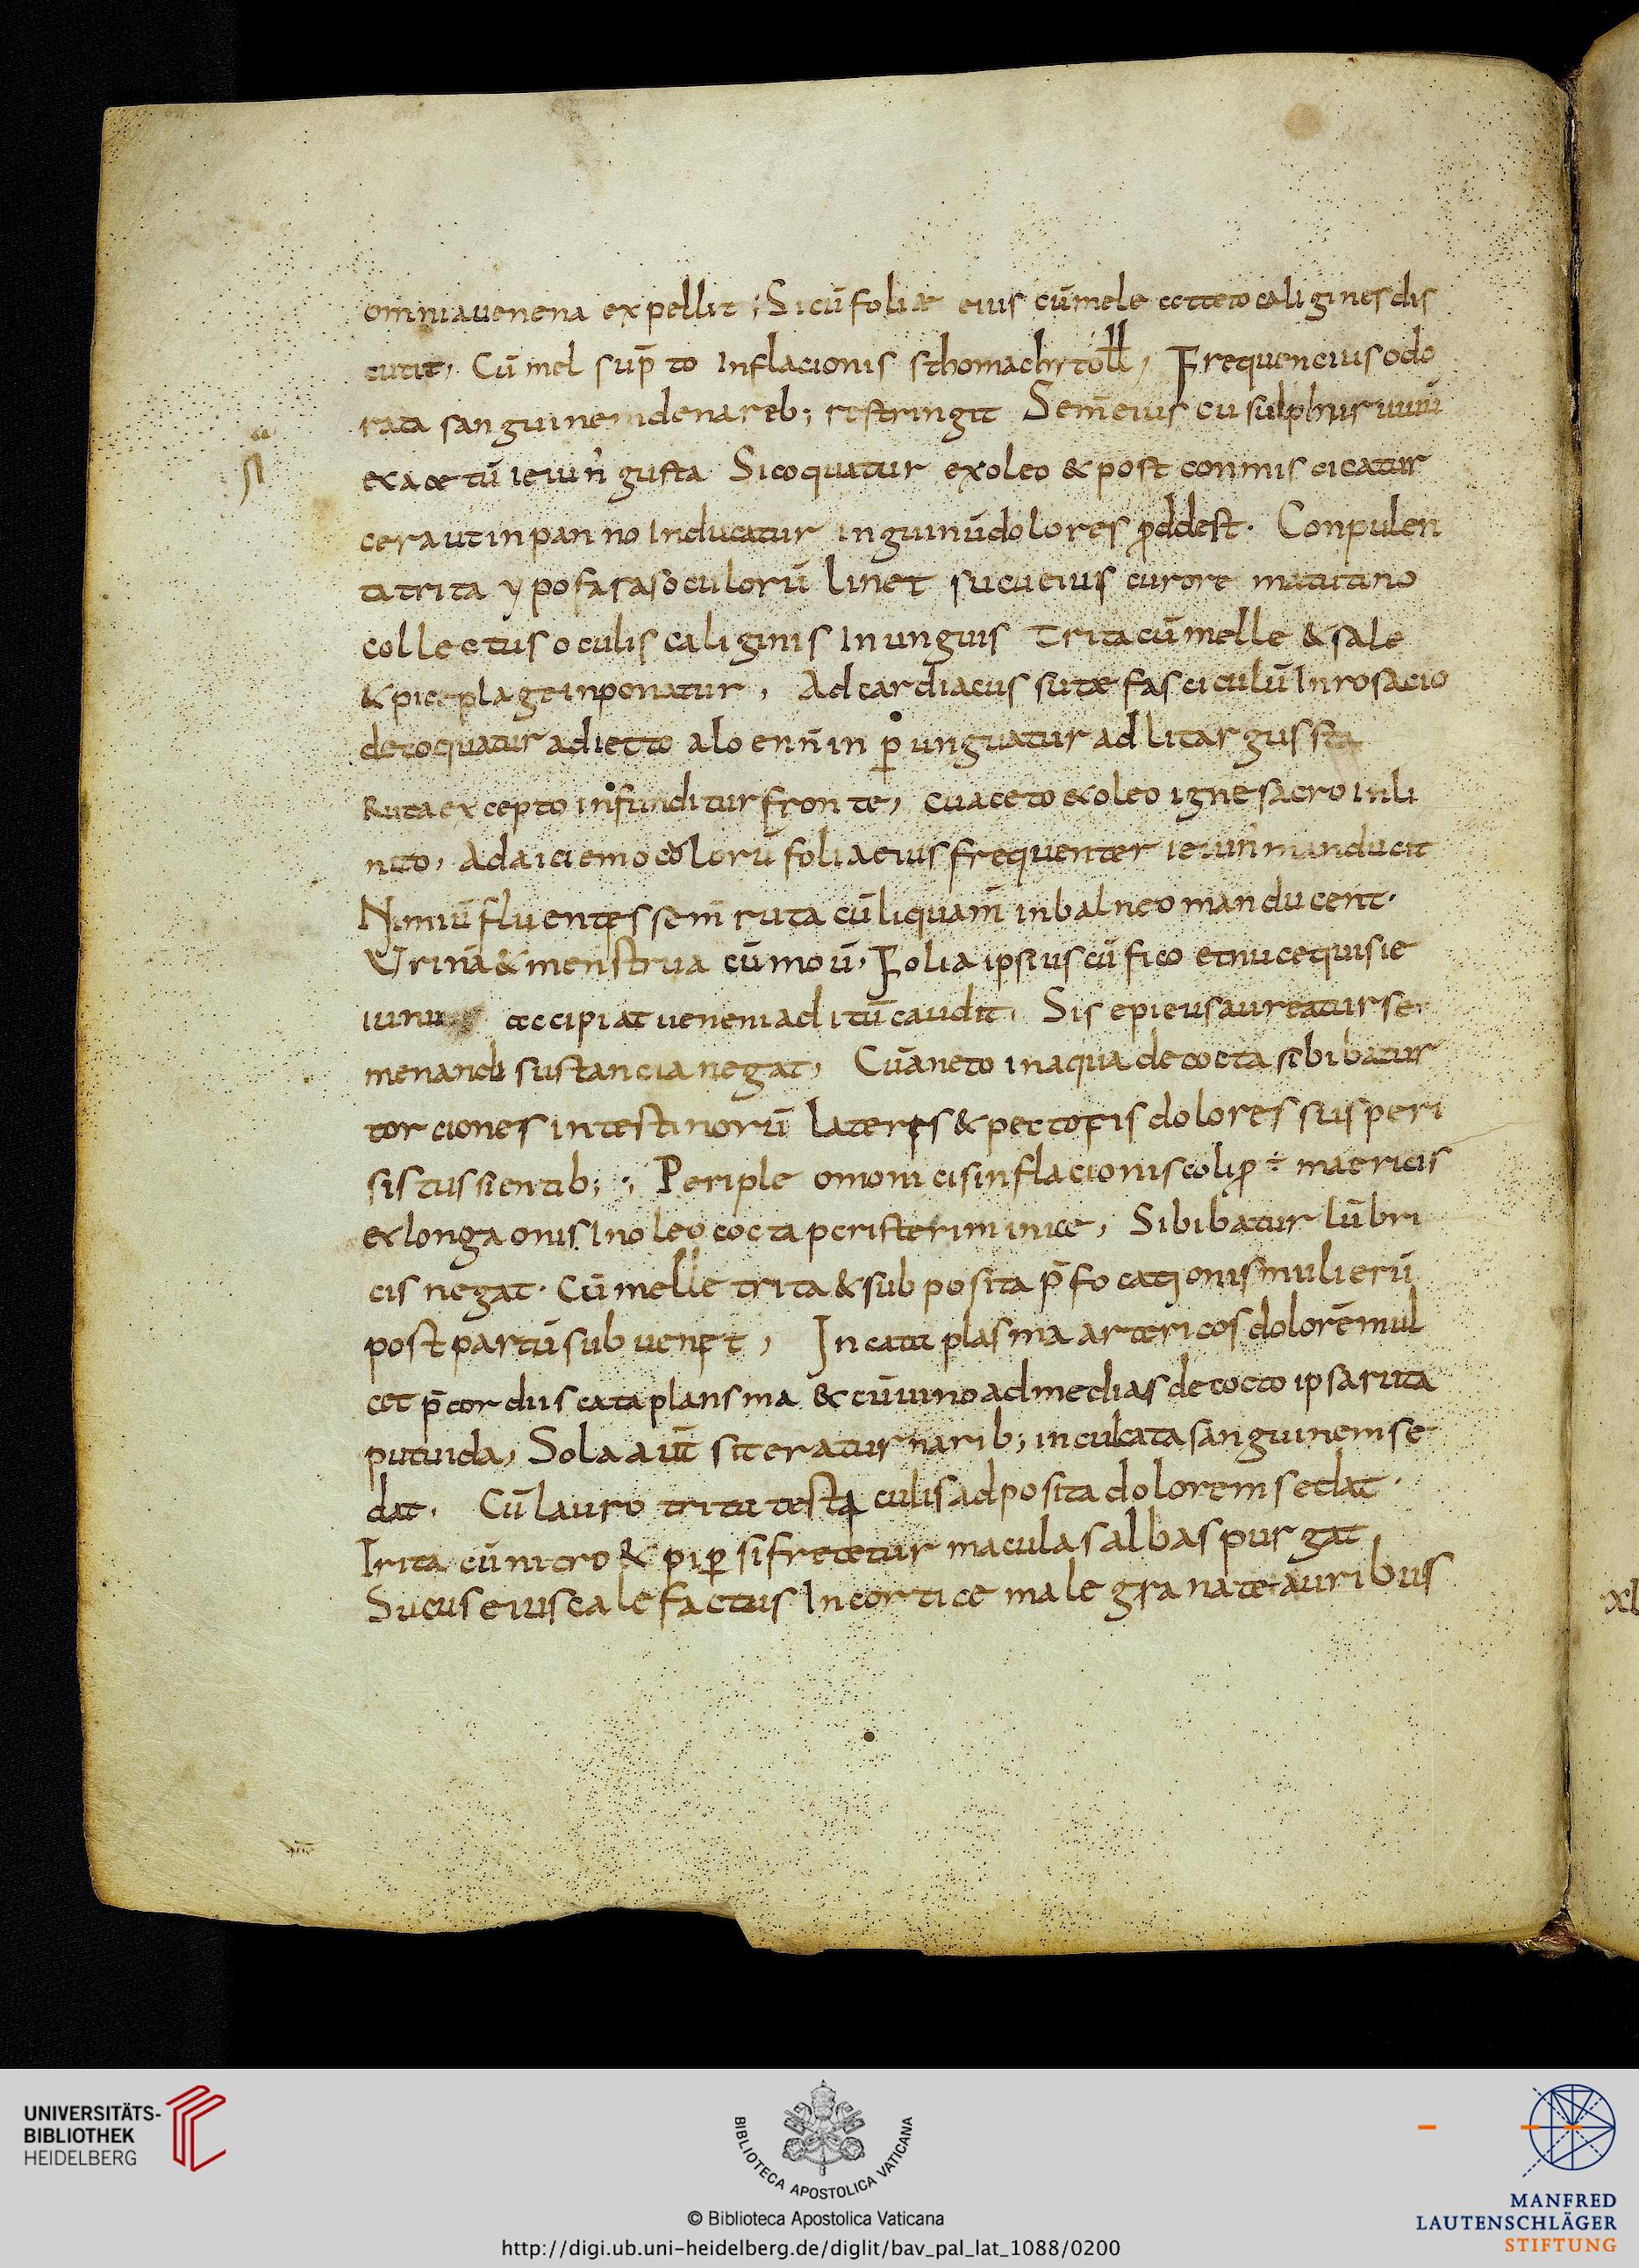 omnia uenena expellit; Si cū foliæ eius cū mele cocteto caligines dis
cutit, Cū mel sup̄ to Inflacionis sthomachi toll̄, Frequencius odo
rata sanguinem de nareb; restringit Sem̄ eius cu sulphur uiuū
ex acetū ieiun̄ gusta Si coquatur ex oleo & post conmisceicatur
cera ut in panno Inducatur inguinū dolores ꝓddest. Con pulen
ta trita ypofasas oculorū linet sucu eius cu rore matutino
collectus oculis caliginis Inunguis Trita cū melle & sale
& pice plage inponatur, Ad cardiacus sutæ fasciculū In rosacio
decoquatur adiecto aloen n̄ in ꝑunguatur ad litargus sta
Ruta ex cepto infunditur fronte, cu aceto & oleo ignē sacro inli
nito, Ad aiciemo colorū folia eius frequenter ieiun̄ manducit
Nimiū fluentes sem̄ ruta cū liquam̄ in balneo manducent.
Urinā & menstrua cū moū, Folia ipsius cū fico et nuce qui sie
iunu accipiat ueneni aditū caudit, Si sepieus aureatur se
menandi sustancia negat, Cū aneto in aqua decocta si bibatur
torciones intestinorū lateres & pectoris dolores susperi
sis tussientib; ·, Periple omonicis inflacionis coli ꝓ ÷ matricis
ex longaonis In oleo cocta peristerim inice, Si bibatur lūbri
cis negat. Cū melle trita & subposita p̄focacionis mulierū
post partū subuenet, In cataplasma artericos dolorē mul
cet p̄cordiis cataplansma & cū uino ad medias decocto ipsa ruta
putuida, Sola aut̄ si teratur narib; inculcata sanguinem se
dat. Cū lauro trita testa culis adposita dolorem sedat.
Trita cū nitro & pip̱ si fretetur maculas albas purgat
Sucus eius calefactus In cortice male granate auribus
si
xl
UNIVERSITÄTS-
BIBLIOTHEK
HEIDELBERG
BIBLIOTECA APOSTOLICA VATICANA
© Biblioteca Apostolica Vaticana
http://digi.ub.uni-heidelberg.de/diglit/bav_pal_lat_1088/0200
MANFRED
LAUTENSCHLÄGER
STIFTUNG